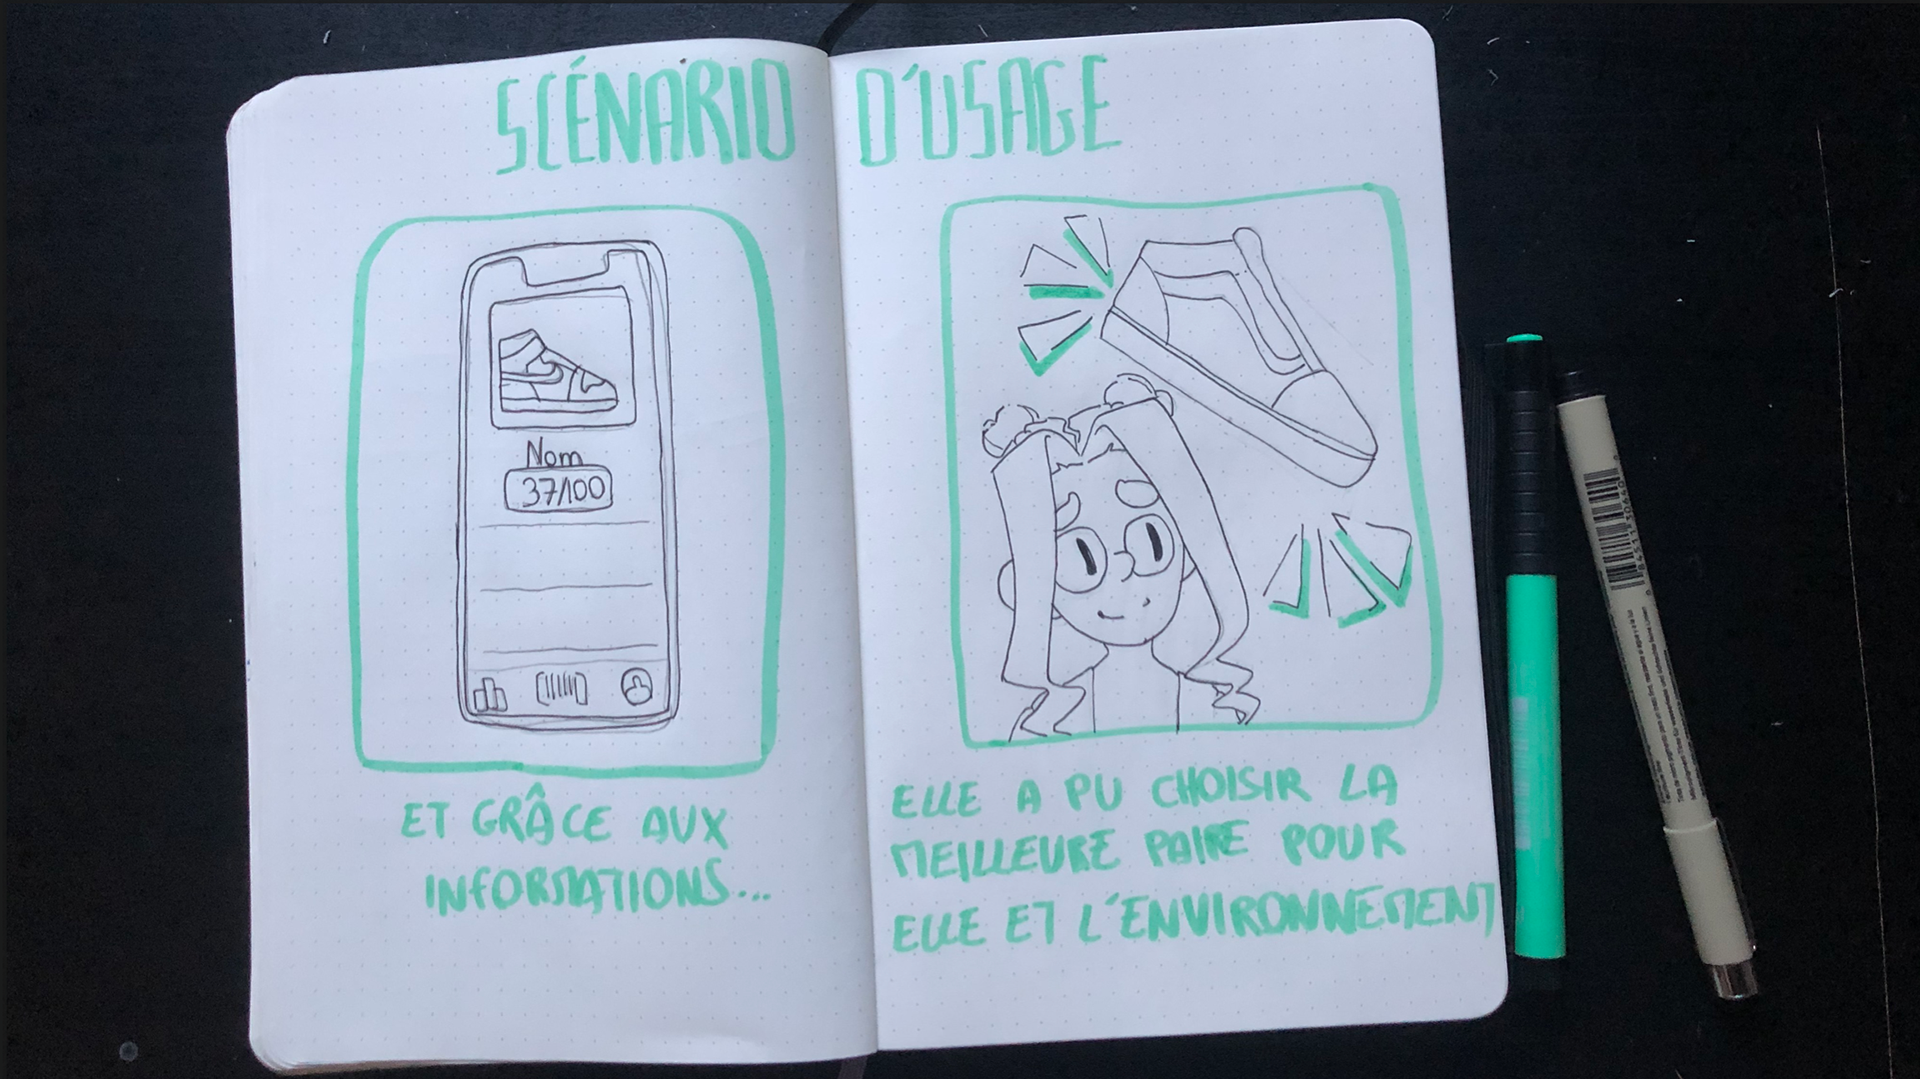 SCÉNARIO D'USAGE
Nom
37/100
ET GRÂCE AUX
INFORMATIONS...
ELLE A PU CHOISIR LA
MEILLEURE PAIRE POUR
ELLE ET L'ENVIRONNEMENT